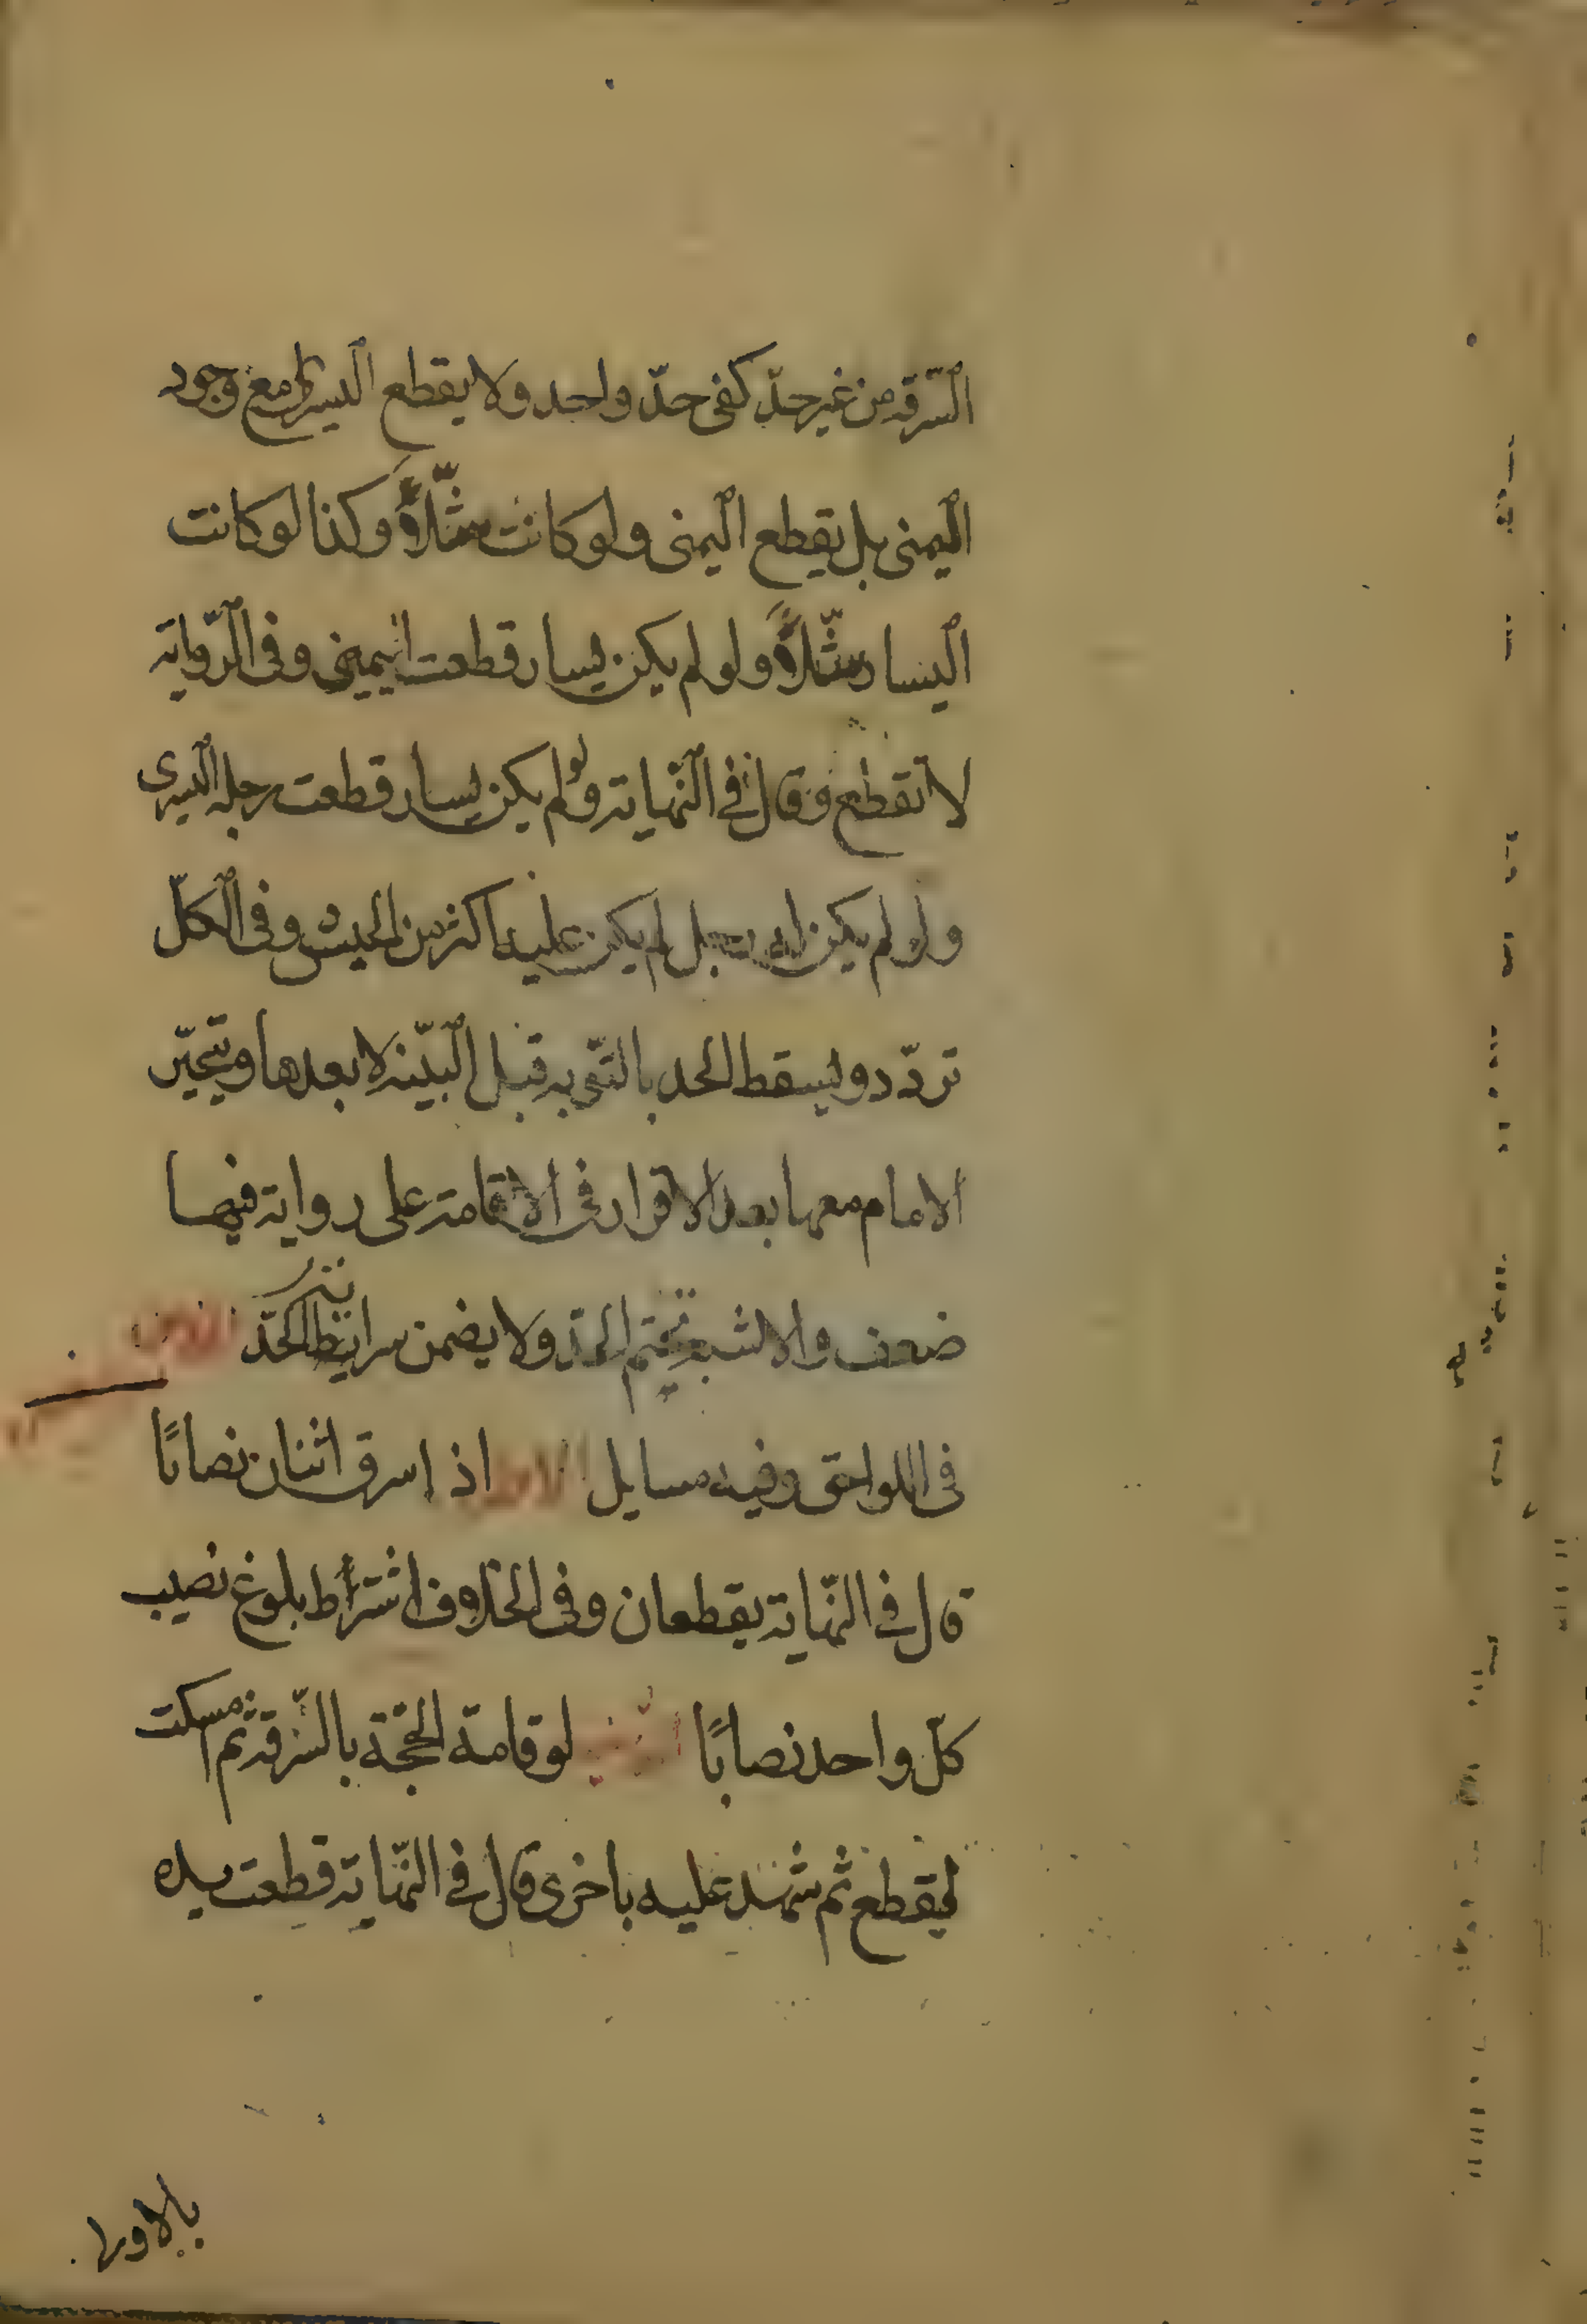 السّرقة من غير حدّ كفى حدّ واحد ولا يقطع اليسرى مع وجود
اليمنى بل يقطع اليمنى ولو كانت شلّاءً وكذا لو كانت
اليسار شلّاءً ولو لم يكن يسار قطعت اليمينى وفى الرّواية
لا تقطع وقال فى النّهاية ولو لم يكن يسار قطعت رجله اليسرى
ولو لم يكن له رجل لم يكن عليه اكثر من الحبس وفى الكلّ
تردّد ويسقط الحد بالتّوبة قبل البيّنة لا بعدها ويتخيّر
الامام معها بعد الاقرار فى الاقامة على رواية فيها
ضعف والاشبه تحتم الحدّ ولا يضمن سراية الحدّ
فى اللواحق وفيه مسايل اذا سرق اثنان نصابًا
قال فى النّهاية يقطعان وفى الخلاف اشتراط بلوغ نصيب
كلّ واحد نصابًا لو قامة الحجّة بالسّرقة ثم مسكت
ليقطع ثم شهد عليه باخرى قال فى النّهاية قطعت يده
بالاولى